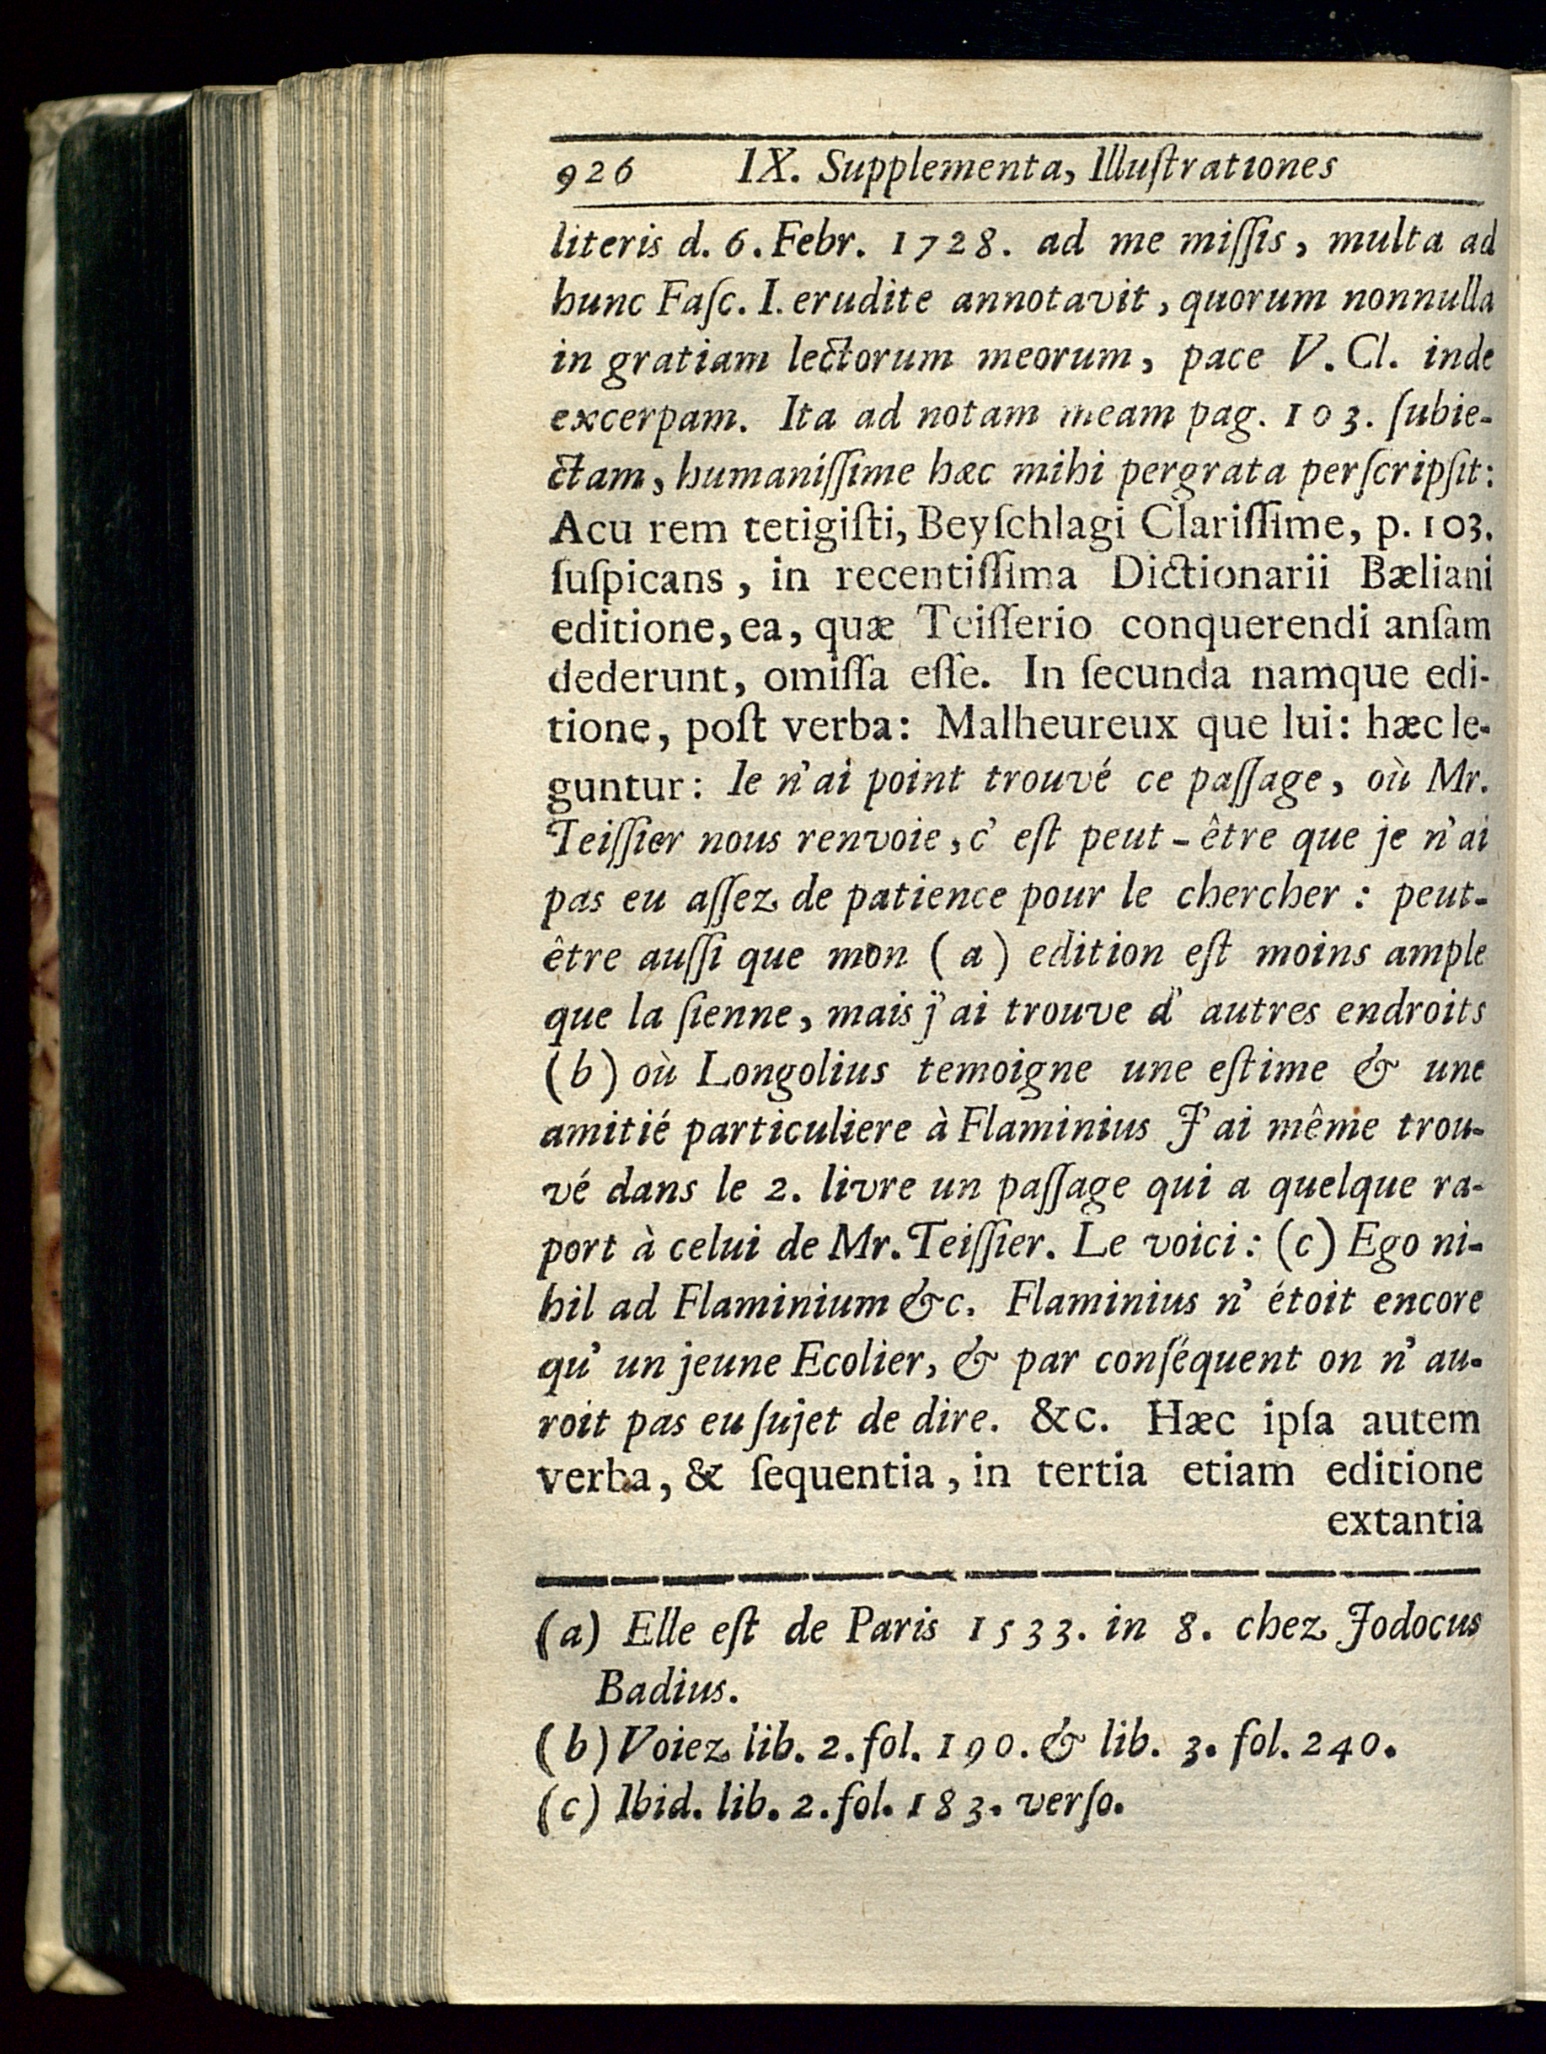 926 IX. Supplementa, Illuſtrationes
literis d. 6. Febr. 1728. ad me miſſis, multa ad
hunc Faſc. I. erudite annotavit, quorum nonnulla
in gratiam lectorum meorum, pace V. Cl. inde
excerpam. Ita ad notam meam pag. 103. ſubie-
ctam, humaniſſime hæc mihi pergrata perſcripſit:
Acu rem tetigiſti, Beyſchlagi Clariſſime, p. 103.
ſuſpicans, in recentiſſima Dictionarii Bæliani
editione, ea, quæ Teiſſerio conquerendi anſam
dederunt, omiſſa eſſe. In ſecunda namque edi-
tione, poſt verba: Malheureux que lui: hæc le-
guntur: Ie n'ai point trouvé ce paſſage, où Mr.
Teiſſier nous renvoie, c' eſt peut-être que je n'ai
pas eu aſſez de patience pour le chercher: peut-
être auſſi que mon (a) edition eſt moins ample
que la ſienne, mais j'ai trouve d' autres endroits
(b) où Longolius temoigne une eſtime & une
amitié particuliere à Flaminius J'ai même trou-
vé dans le 2. livre un paſſage qui a quelque ra-
port à celui de Mr. Teiſſier. Le voici: (c) Ego ni-
hil ad Flaminium &c. Flaminius n' étoit encore
qu' un jeune Ecolier, & par conſéquent on n' au-
roit pas eu ſujet de dire. &c. Hæc ipſa autem
verba, & ſequentia, in tertia etiam editione
extantia
(a) Elle eſt de Paris 1533. in 8. chez Jodocus
Badius.
(b) Voiez lib. 2. fol. 190. & lib. 3. fol. 240.
(c) Ibid. lib. 2. fol. 183. verſo.